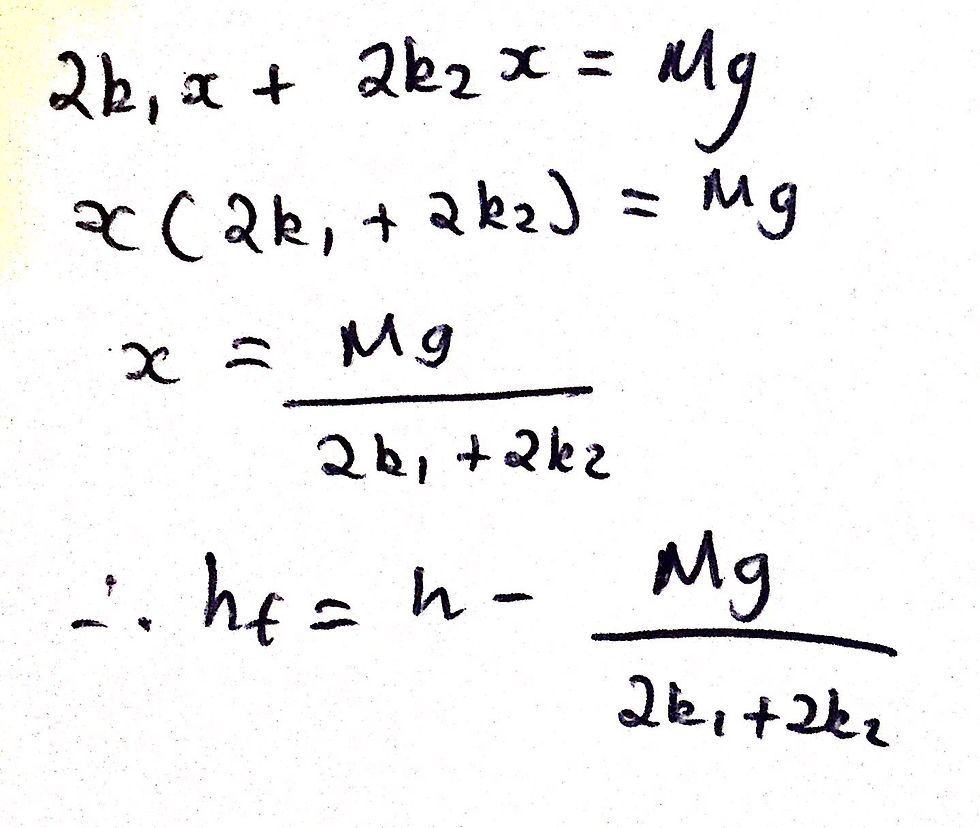 2k₁x + 2k₂x = Mg
x(2k₁ + 2k₂) = Mg
x = Mg / 2k₁ + 2k₂
∴ hf = h - Mg / 2k₁ + 2k₂